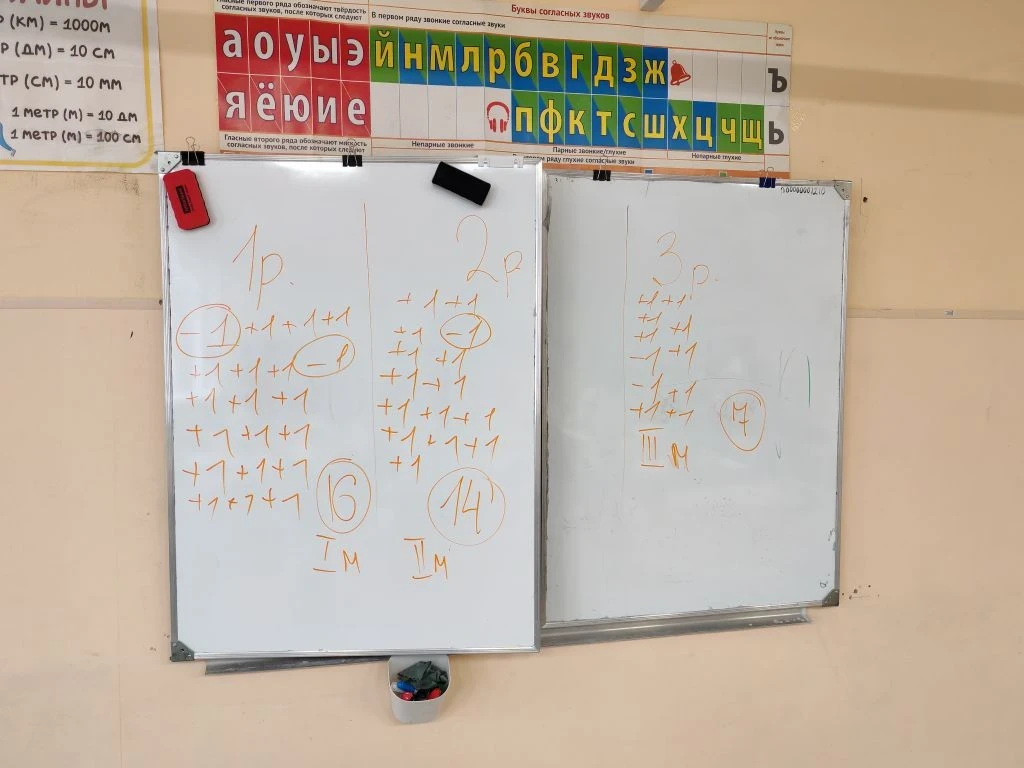 Р (КМ) = 1000М
Р (ДМ) = 10 СМ
ТР (СМ) = 10 ММ
1 МЕТР (М) = 10 ДМ
1 МЕТР (М) = 100 СМ
Буквы согласных звуков
Гласные первого ряда обозначают твёрдость
согласных звуков, после которых следуют
В первом ряду звонкие согласные звуки
а о у ы э й н м л р б в г д з ж ъ
я ё ю и е п ф к т с ш х ц ч щ ь
Гласные второго ряда обозначают мягкость
согласных звуков, после которых следуют
Непарные звонкие
Парные звонкие/глухие
Непарные глухие
втором ряду глухие согласные звуки
1р.
-1 +1+1+1
+1+1+1 -1
+1+1+1
+1+1+1
+1+1+1
+1+1+1
16
I м
2р
+1+1
+1 -1
+1 +1
+1+1
+1+1+1
+1+1+1
+1
14
II м
3р.
+1+1
+1 +1
-1 +1
-1 +1
+1+1
7
III м